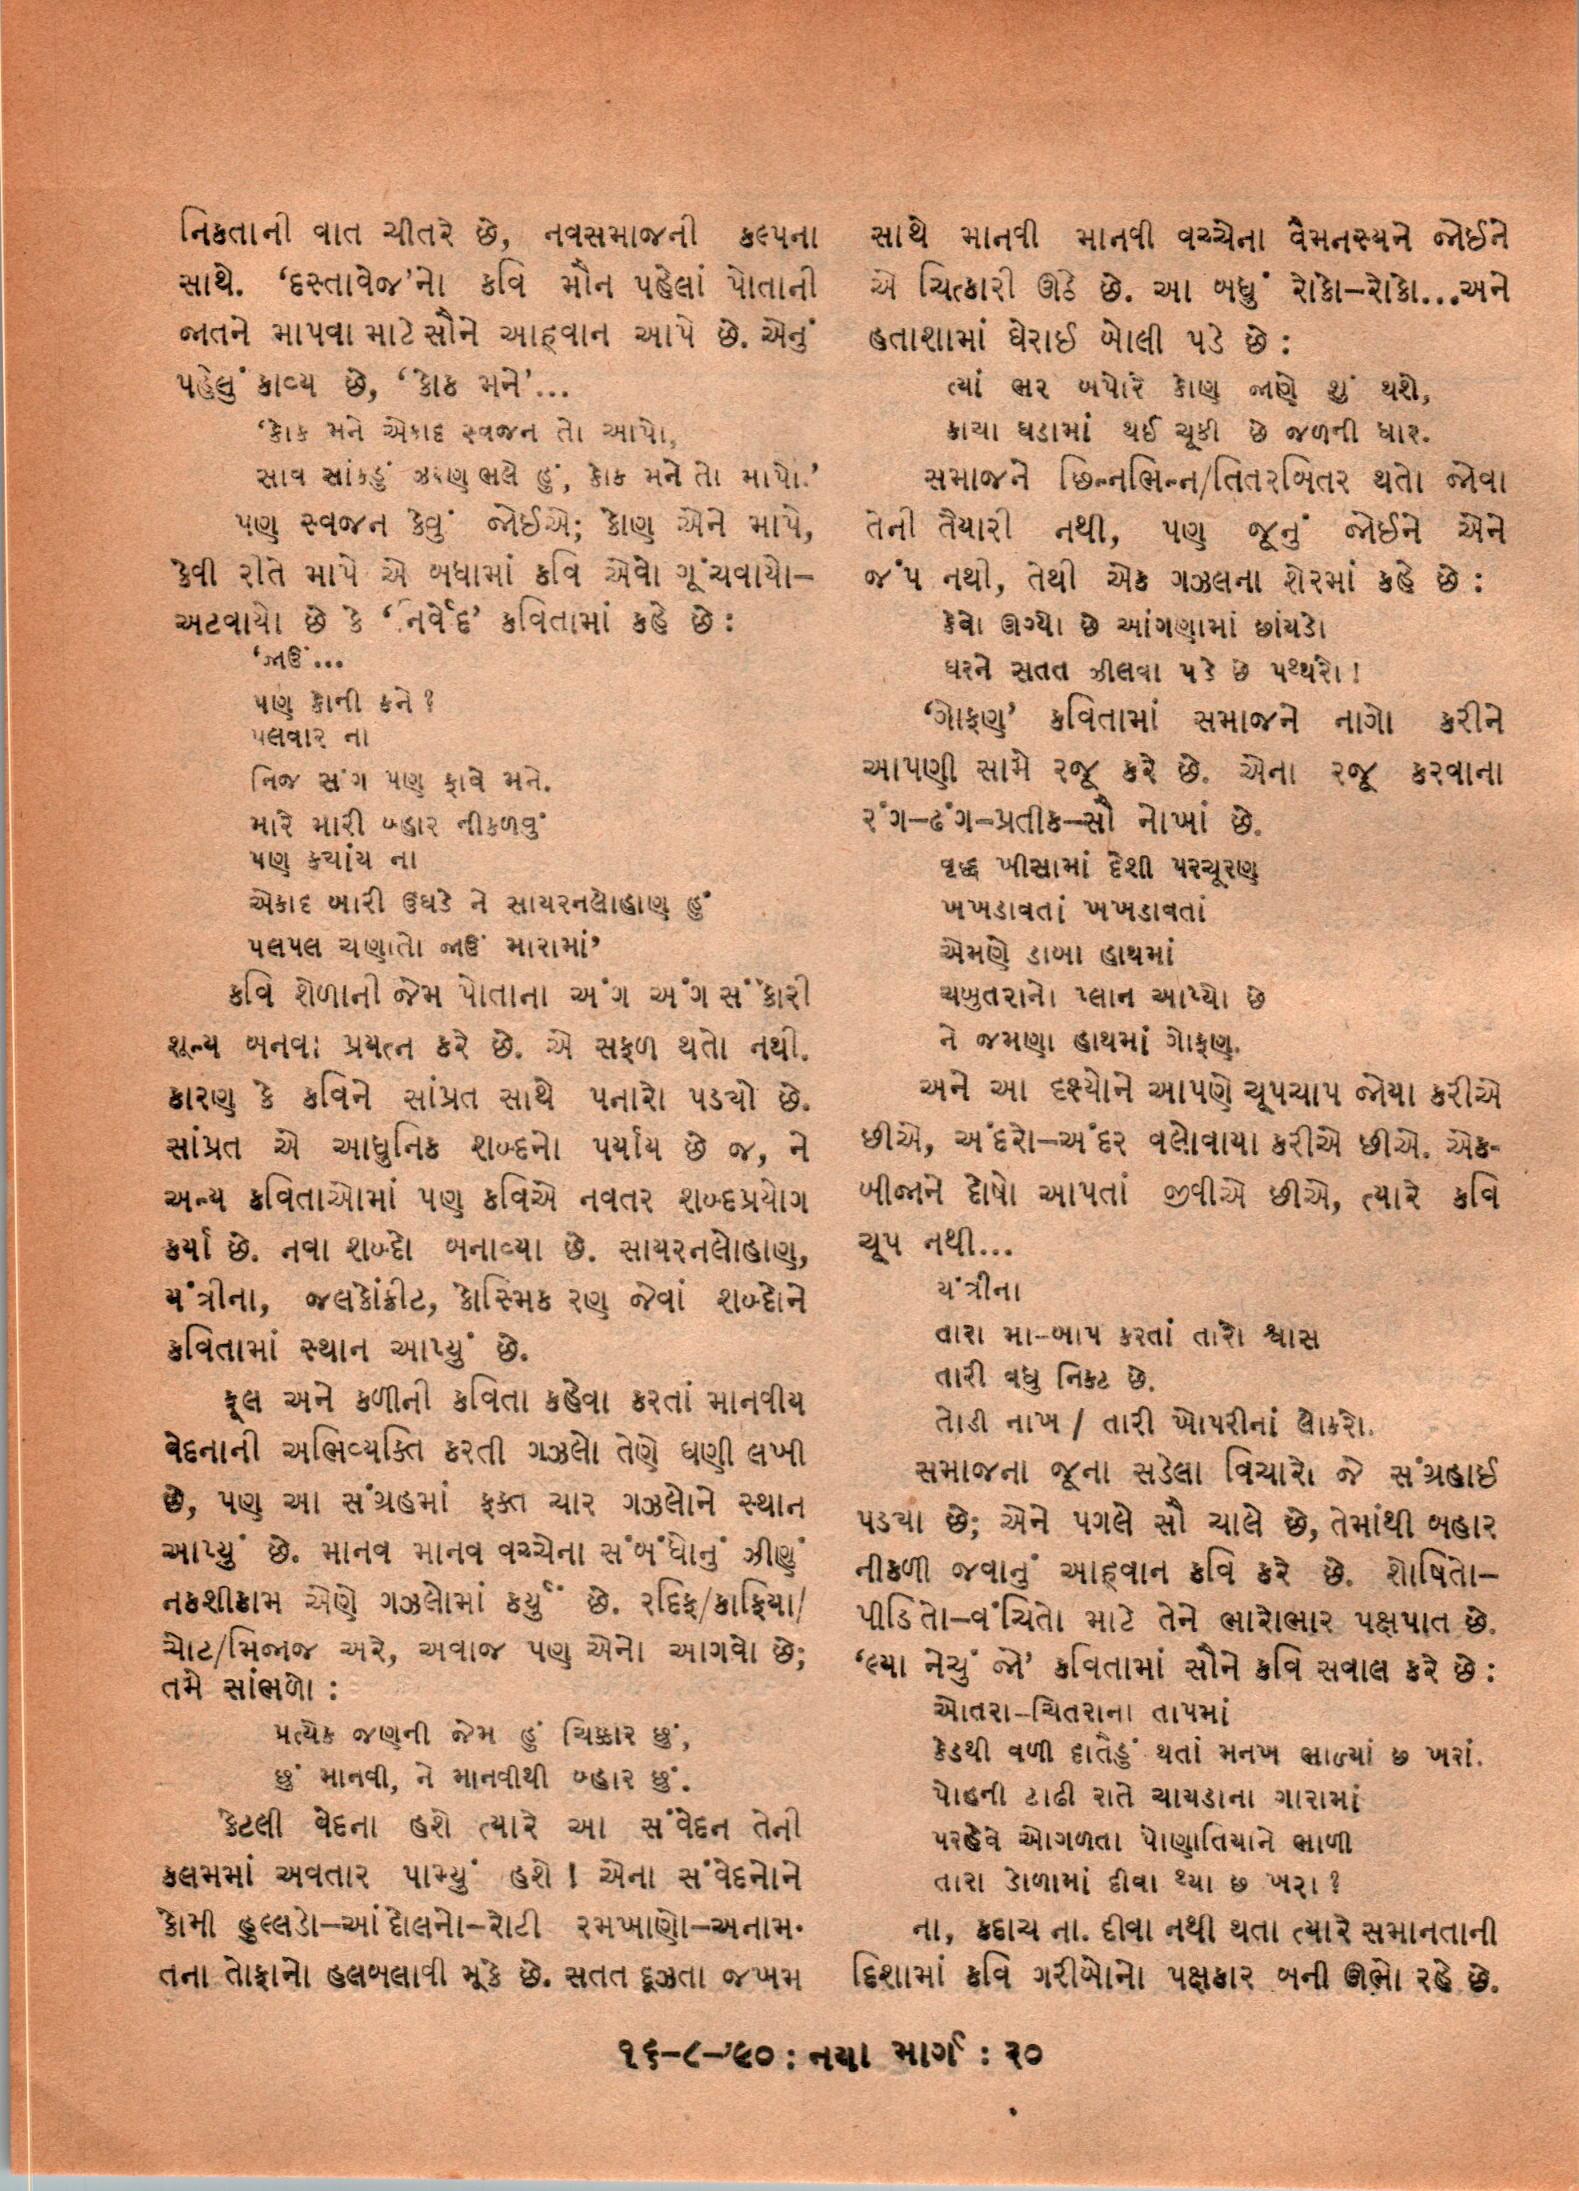 નિકતાની વાત ચીતરે છે, નવસમાજની કલ્પના
સાથે. ‘દસ્તાવેજ’નો કવિ મૌન પહેલાં પોતાની
જાતને માપવા માટે સૌને આહ્‌વાન આપે છે. એનું
પહેલું કાવ્ય છે, ‘કોક મને’...
‘કોક મને એકાદ સ્વજન તો આપો,
સાવ સાંકડું ઝરણ ભલે હું, કોક મને તો માપો.’
પણ સ્વજન કેવું જોઈએ; કોણ એને માપે,
કેવી રીતે માપે એ બધામાં કવિ એવો ગૂંચવાયો–
અટવાયો છે કે ‘નિર્વેદ’ કવિતામાં કહે છે :
‘જાઉં...
પણ કોની કને ?
પલવાર ના
નિજ સંગ પણ ફાવે મને.
મારે મારી બ્હાર નીકળવું
પણ કયાંય ના
એકાદ બારી ઉઘડે ને સાયરનલોહાણ હું
પલપલ ચણાતો જાઉં મારામાં’
કવિ શેળાની જેમ પોતાના અંગ અંગ સંકોરી
શૂન્ય બનવા પ્રયત્ન કરે છે. એ સફળ થતો નથી.
કારણ કે કવિને સાંપ્રત સાથે પનારો પડયો છે.
સાંપ્રત એ આધુનિક શબ્દનો પર્યાય છે જ, ને
અન્ય કવિતાઓમાં પણ કવિએ નવતર શબ્દપ્રયોગ
કર્યા છે. નવા શબ્દો બનાવ્યા છે. સાયરનલોહાણ,
યંત્રીના, જલકોંક્રીટ, કોસ્મિક રણ જેવાં શબ્દોને
કવિતામાં સ્થાન આપ્યું છે.
ફૂલ અને કળીની કવિતા કહેવા કરતાં માનવીય
વેદનાની અભિવ્યક્તિ કરતી ગઝલો તેણે ઘણી લખી
છે, પણ આ સંગ્રહમાં ફક્ત ચાર ગઝલોને સ્થાન
આપ્યું છે. માનવ માનવ વચ્ચેના સંબંધોનું ઝીણું
નકશીકામ એણે ગઝલોમાં કર્યું છે. રદિફ/કાફિયા/
ચોટ/મિજાજ અરે, અવાજ પણ એનો આગવો છે;
તમે સાંભળો :
પ્રત્યેક જણની જેમ હું ચિક્કાર છું,
છું માનવી, ને માનવીથી બ્હાર છું.
કેટલી વેદના હશે ત્યારે આ સંવેદન તેની
કલમમાં અવતાર પામ્યું હશે ! એના સંવેદનોને
કોમી હુલ્લડો–આંદોલનો–રોટી રમખાણો–અનામ-
તના તોફાનો હલબલાવી મૂકે છે. સતત દૂઝતા જખમ
સાથે માનવી માનવી વચ્ચેના વૈમનસ્યને જોઈને
એ ચિત્કારી ઊઠે છે. આ બધું રોકો–રોકો...અને
હતાશામાં ઘેરાઈ બોલી પડે છે :
ત્યાં ભર બપોરે કોણ જાણે શું થશે,
કાચા ઘડામાં થઈ ચૂકી છે જળની ધાર.
સમાજને છિન્નભિન્ન/તિતરબિતર થતો જોવા
તેની તૈયારી નથી, પણ જૂનું જોઈને એને
જંપ નથી, તેથી એક ગઝલના શેરમાં કહે છે :
કેવો ઊગ્યો છે આંગણામાં છાંયડો
ઘરને સતત ઝીલવા પડે છે પથ્થરો !
‘ગોફણ’ કવિતામાં સમાજને નાગો કરીને
આપણી સામે રજૂ કરે છે. એના રજૂ કરવાના
રંગ–ઢંગ–પ્રતીક–સૌ નોખાં છે.
વૃદ્ધ ખીસામાં દેશી પરચૂરણ
ખખડાવતાં ખખડાવતાં
એમણે ડાબા હાથમાં
ચબુતરાનો પ્લાન આપ્યો છે
ને જમણા હાથમાં ગોફણ.
અને આ દૃશ્યોને આપણે ચૂપચાપ જોયા કરીએ
છીએ, અંદરો–અંદર વલોવાયા કરીએ છીએ. એક-
બીજાને દોષો આપતાં જીવીએ છીએ, ત્યારે કવિ
ચૂપ નથી...
યંત્રીના
તારા મા–બાપ કરતાં તારો શ્વાસ
તારી વધુ નિકટ છે.
તોડી નાખ / તારી ખોપરીનાં લોકરો.
સમાજના જૂના સડેલા વિચારો જે સંગ્રહાઈ
પડયા છે; એને પગલે સૌ ચાલે છે, તેમાંથી બહાર
નીકળી જવાનું આહ્‌વાન કવિ કરે છે. શોષિતો–
પીડિતો–વંચિતો માટે તેને ભારોભાર પક્ષપાત છે.
‘લ્યા નેચું જો’ કવિતામાં સૌને કવિ સવાલ કરે છે :
ઓતરા–ચિતરાના તાપમાં
કેડથી વળી દાતૈડું થતાં મનખ ભાળ્યાં છ ખરાં.
પોહની ટાઢી રાતે ચાયડાના ગારામાં
પરહેવે ઓગળતા પોણાતિયાને ભાળી
તારા ડોળામાં દીવા થ્યા છ ખરા ?
ના, કદાચ ના. દીવા નથી થતા ત્યારે સમાનતાની
દિશામાં કવિ ગરીબોનો પક્ષકાર બની ઊભો રહે છે.
૧૬–૮–’૯૦ : નયા માર્ગ : ૨૦